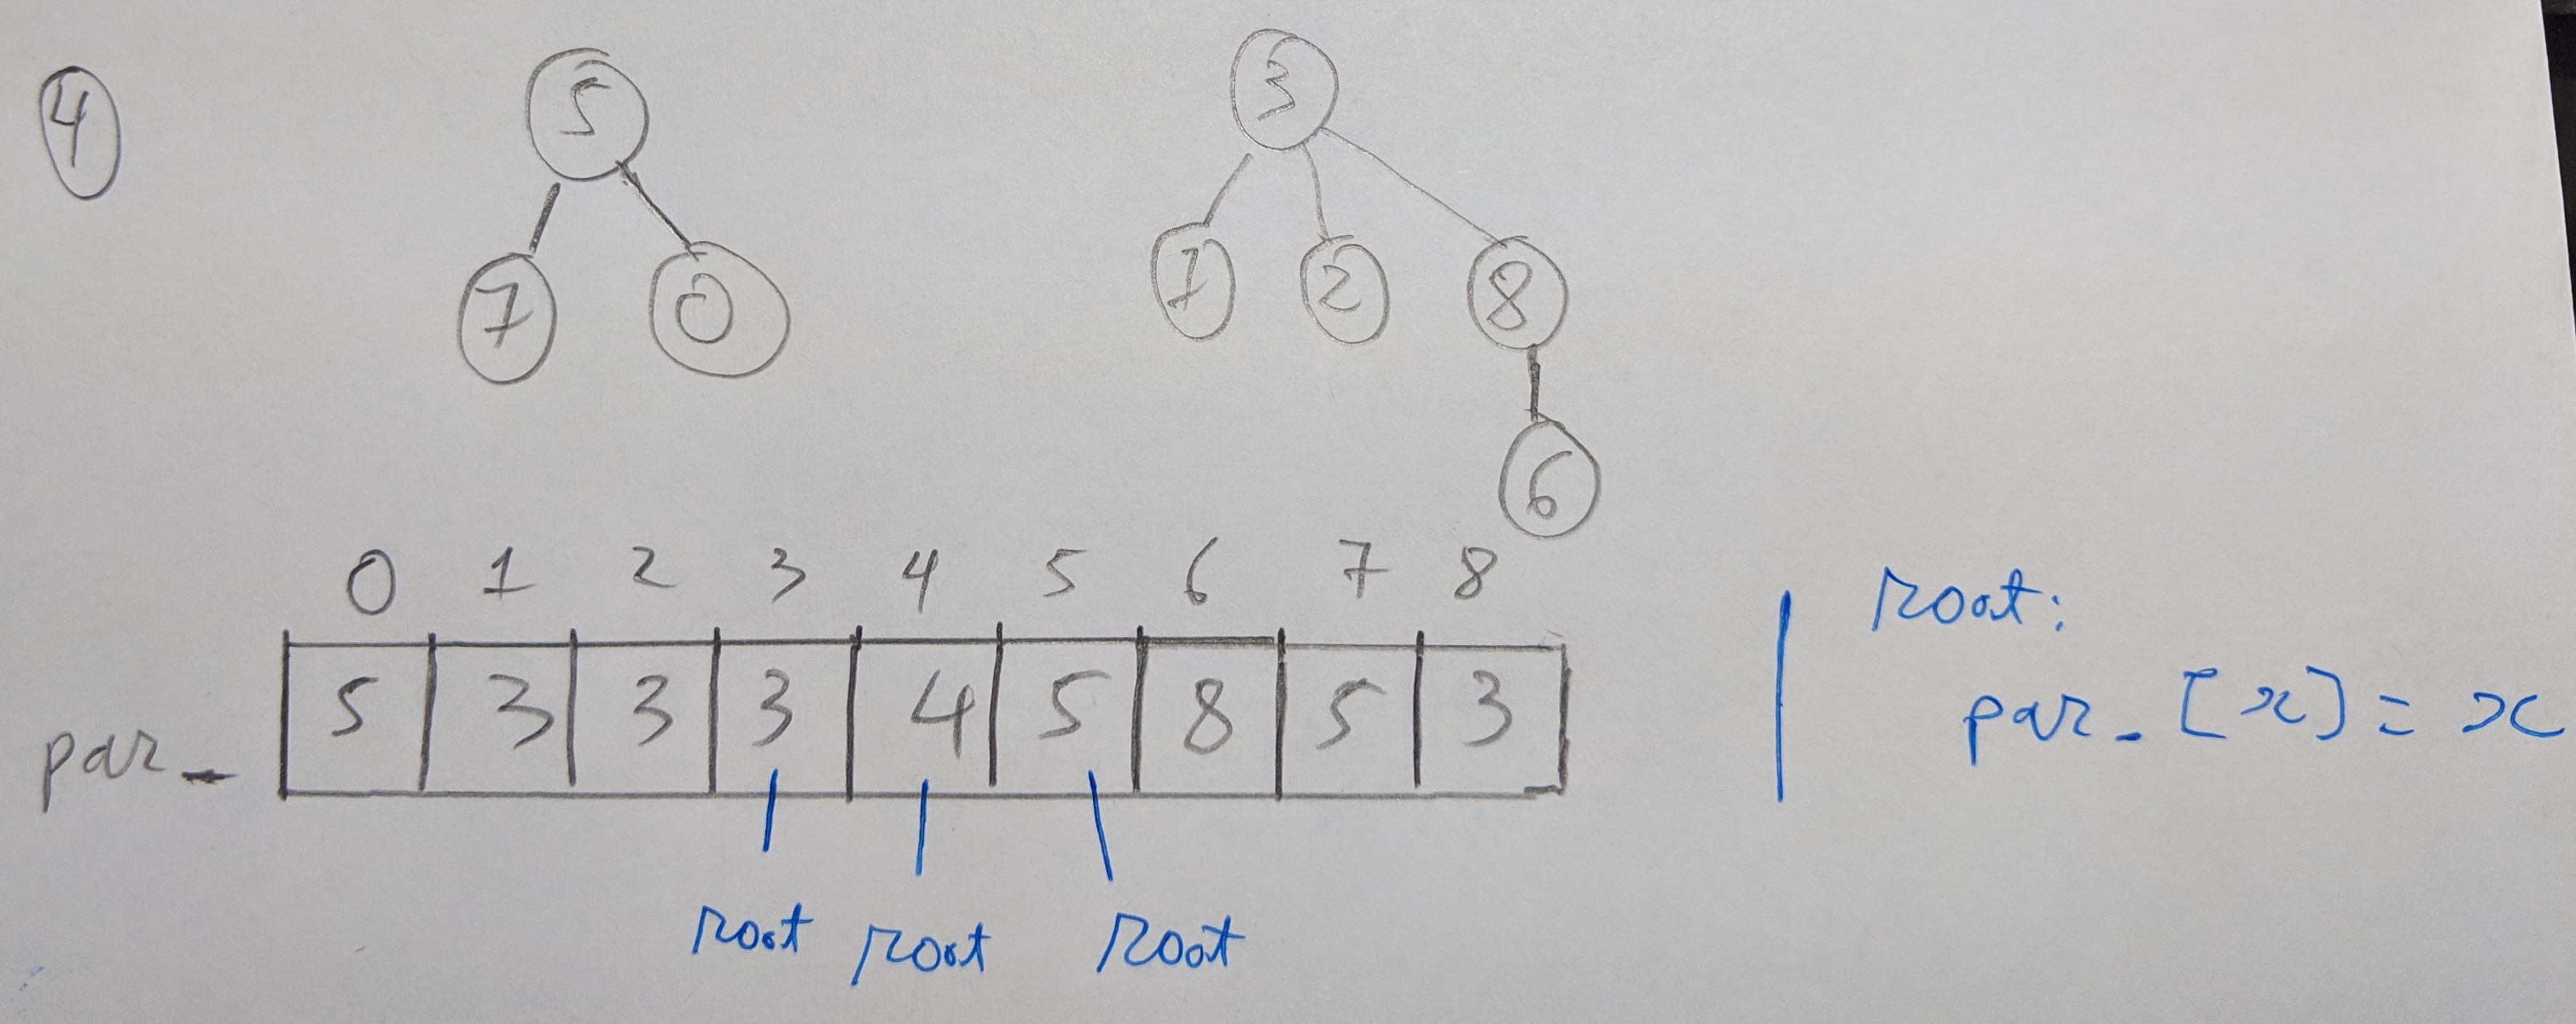 4 5 3
7 0 1 2 8
6
0 1 2 3 4 5 6 7 8
par_ 5 3 3 3 4 5 8 5 3
root root root
root:
par_[x] = x